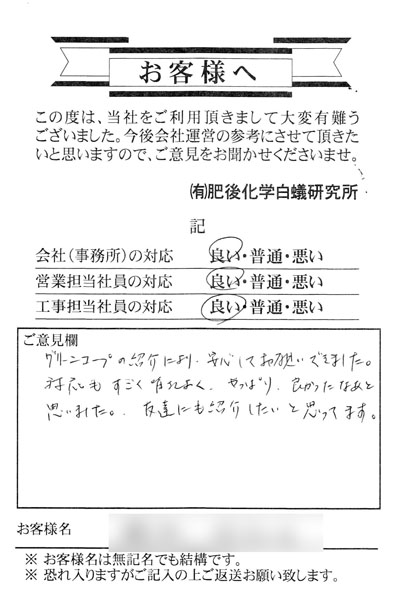 お客様へ
この度は、当社をご利用頂きまして大変有難う
ございました。今後会社運営の参考にさせて頂きた
いと思いますので、ご意見をお聞かせくださいませ。
㈲肥後化学白蟻研究所
記
会社（事務所）の対応 良い・普通・悪い
営業担当社員の対応 良い・普通・悪い
工事担当社員の対応 良い・普通・悪い
ご意見欄
グリーンコープの紹介により、安心してお願いできました。
対応もすごく よく、やっぱり、良かったなあと
思いました。友達にも紹介したいと思ってます。
お客様名
※ お客様名は無記名でも結構です。
※ 恐れ入りますがご記入の上ご返送お願い致します。